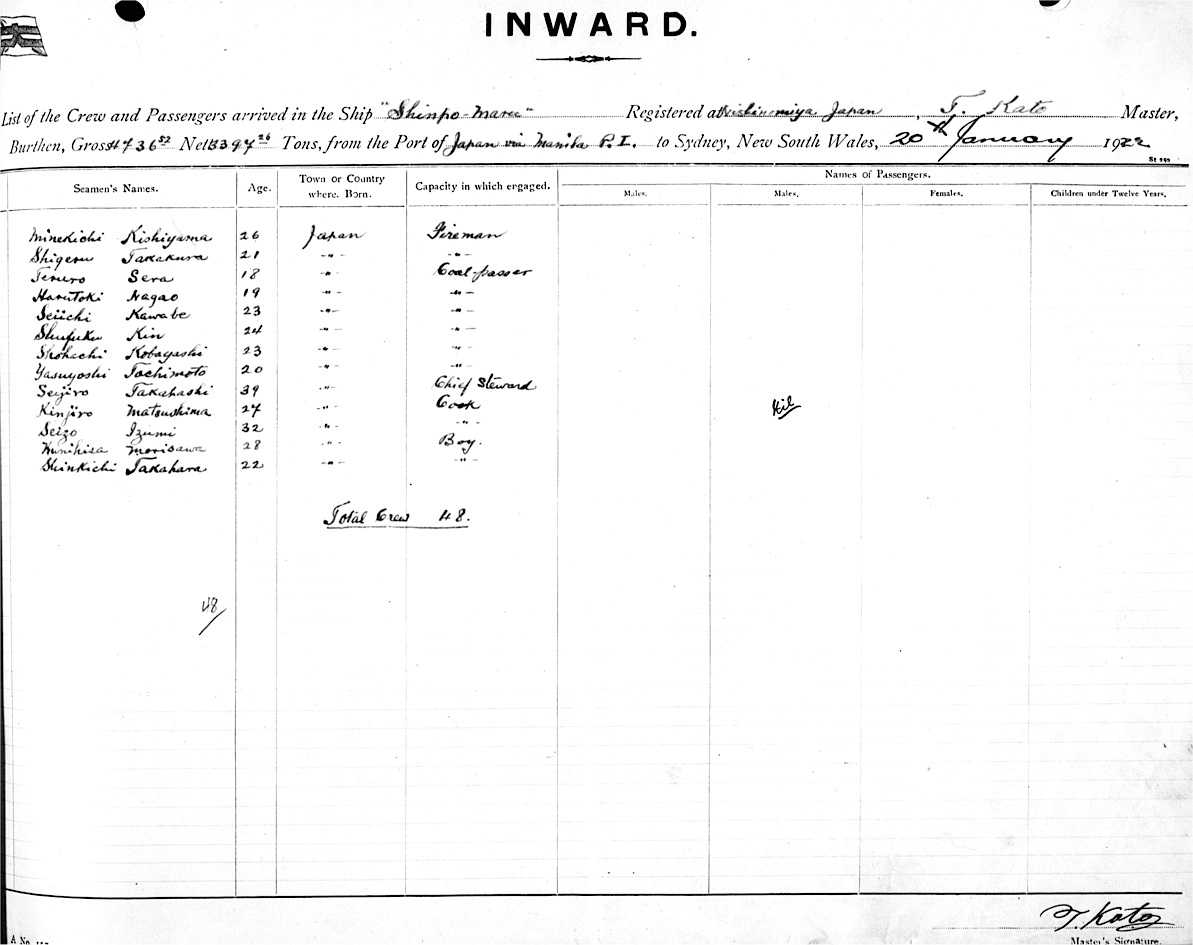 INWARD.
List of the Crew and Passengers arrived in the Ship "Shinpo-Maru" Registered at Nishinomiya Japan, T. Kato Master,
Burthen, Gross 4736 52 Net 3397 26 Tons, from the Port of Japan via Manila P.I. to Sydney, New South Wales, 20th January 1922
Seamen's Names. Age. Town or Country where Born. Capacity in which engaged. Names of Passengers.
Males. Males. Females. Children under Twelve Years.
Minekichi Kishiyama 26 Japan Fireman
Shigeru Takakura 21 -"- -"-
Teruro Sera 18 -"- Coal-passer
Harutoki Nagao 19 -"- -"-
Seiichi Kawabe 23 -"- -"-
Shufuku Kin 24 -"- -"-
Shohachi Kobayashi 23 -"- -"-
Yasuyoshi Tochimoto 20 -"- -"-
Seijiro Takahashi 39 -"- Chief Steward
Kinjiro Matsushima 27 -"- Cook
Nil
Seizo Izumi 32 -"- -"-
Kunihisa Morisawa 28 -"- Boy.
Shinkichi Takahara 22 -"- -"-
Total Crew 48.
48/
T. Kato
Master's Signature.
A No.